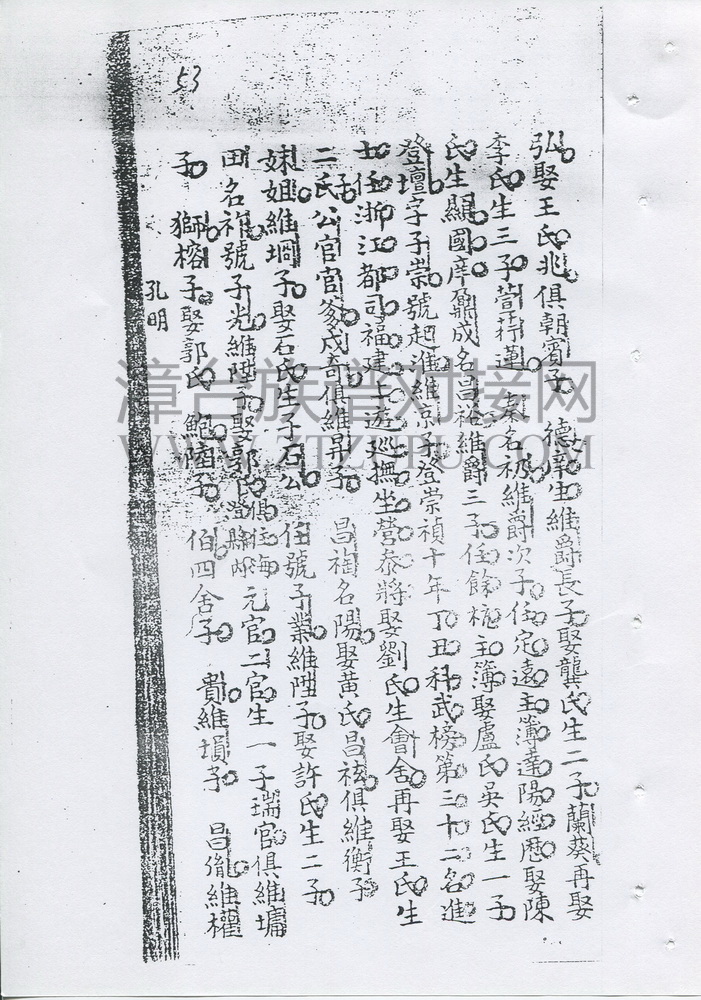 53
弘娶王氏兆俱朝賓子 德 生維爵長子娶龔氏生二子蘭葵再娶
李氏生三子 荇蓮 名 維爵次子任定遠主簿達陽經歷娶陳
氏生顯國庠 成名昌裕維爵三子任餘杭主簿娶盧氏吳氏生一子
登壇字子崇號 維京子登崇禎十年丁丑科武榜第三十二名進
士任浙江都司福建士遊巡撫坐營泰將娶劉氏生會舍再娶王氏生
二子 氏公官官爹成奇俱維昇子 昌 名陽娶黃氏昌 俱維衡子
妹姐維垌子娶石氏生子石公 任號子業維陞子娶許氏生二子
田名 號子光維陞子娶郭氏 俱住海澄縣 元官二官生一子瑞官俱維墉
子 獅榕子娶郭氏 鮑 子 伯四舍子 貴維塤子 昌胤維權
孔明
漳台族谱对接网
WWW.ZTZUPU.COM